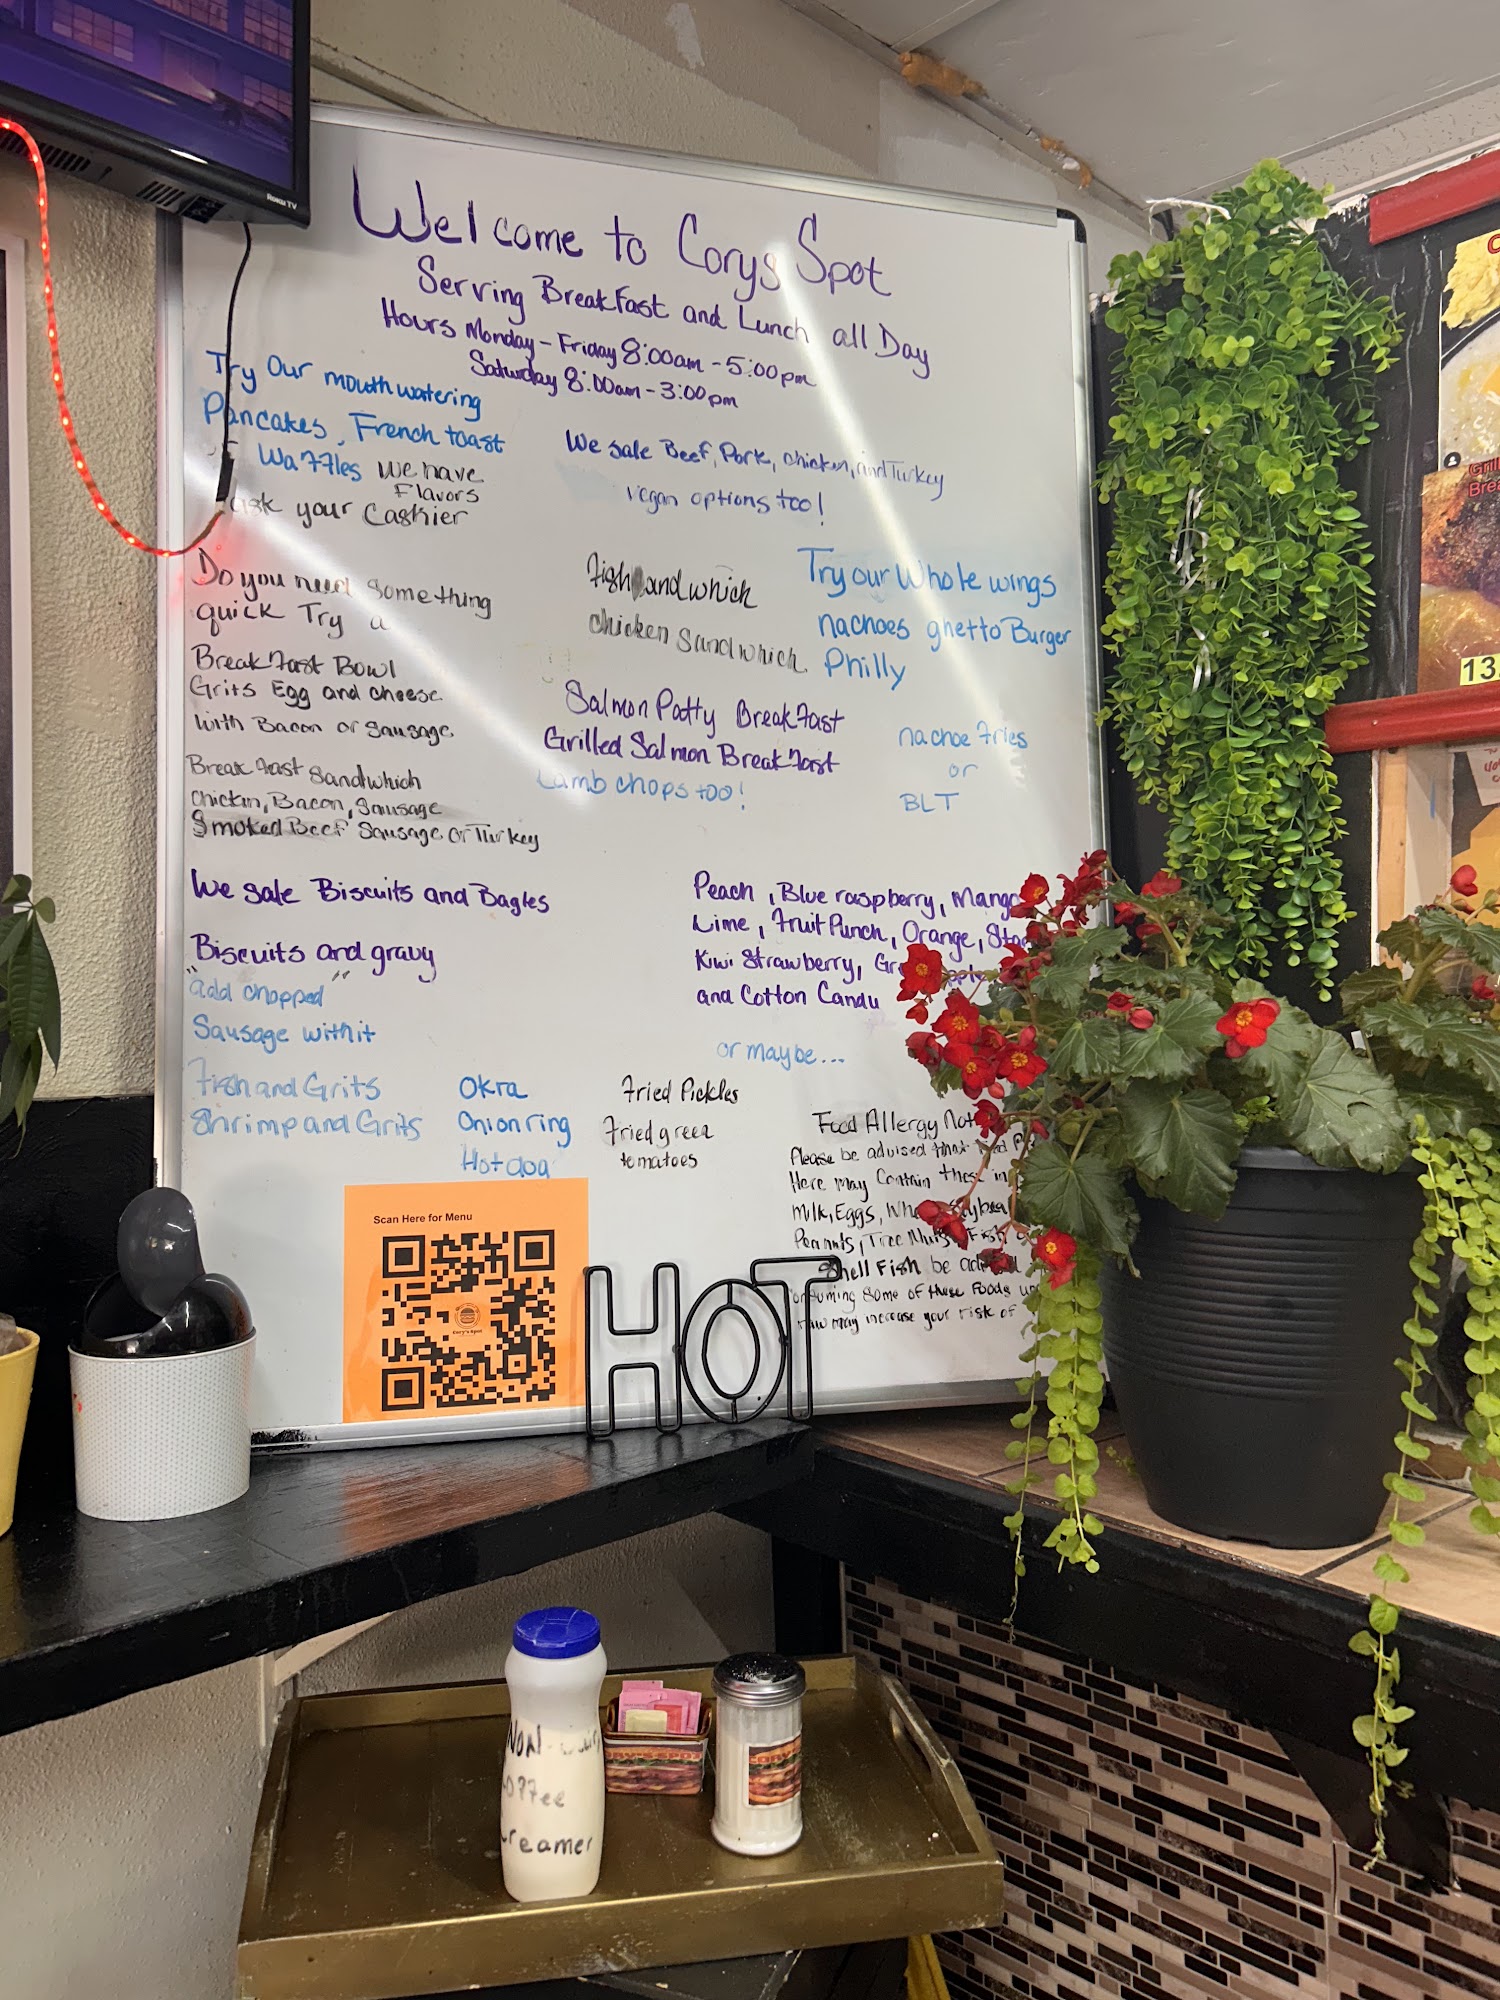 Roku TV
Welcome to Corys Spot
Serving BreakFast and Lunch all Day
Hours Monday - Friday 8:00am - 5:00pm
Saturday 8:00am - 3:00pm
Try Our mouthwatering
Pancakes, French toast
Waffles we have
Flavors
ask your Cashier
We sale Beef, Pork, chicken, and Turkey
Vegan options too!
Do you need something
quick Try a
BreakFast Bowl
Grits Egg and cheese
with Bacon or Sausage
BreakFast Sandwhich
Chicken, Bacon, Sausage
Smoked Beef Sausage or Turkey
Fish andwhich
chicken Sandwhich
Try our Whole wings
nachoes ghetto Burger
Philly
Salmon Patty BreakFast
Grilled Salmon BreakFast
Lamb chops too!
nachoe Fries
or
BLT
We sale Biscuits and Bagles
Biscuits and gravy
"add chopped"
Sausage with it
Fish and Grits
Shrimp and Grits
Okra
Onion ring
Hot dog
Fried Pickles
Fried green
tomatoes
Peach, Blue raspberry, Mango
Lime, Fruit Punch, Orange,
Kiwi Strawberry,
and Cotton Candy
or maybe...
Food Allergy
Please be advised that
Here may Contain these
milk, Eggs,
Peanuts, Tree Nuts, Fish
Shell Fish be
consuming Some of these Foods
raw may increase your risk of
Scan Here for Menu
Cory's Spot
HOT
Non-Dairy
Coffee
Creamer
CORY'S SPOT
CORY'S
13.